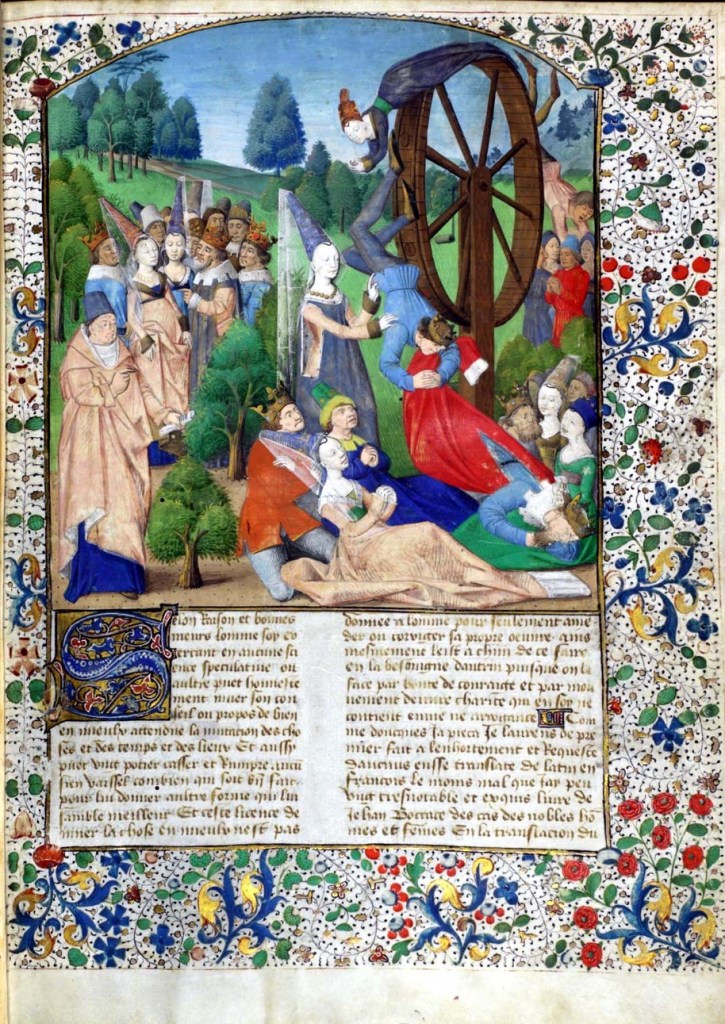 Selon Raison et bonnes
meurs lomme soy ex
ercant en aucune sci
ence speculative ou
aultre puet honneste
ment muer son con
seil ou propos de bien
en mieulx attendue la mutacion des cho
ses et des temps et des lieux Et aussy
puet ung potier casser et Rumpre aucun
sien vaissel combien quil soit bien fait
pour lui donner aultre forme qui lui
samble meilleur Et ceste licence de
muer la chose en mieulx nest pas
donnee a lomme pour seulement amen
der ou corriger sa propre oeuvre ains
mesmement leist a chascun de ce faire
en la besoingne dautrui puisque on la
face par bonte de couraige et par mou
uement de vraie charite qui en soy ne
contient envie ne arrogance Com
me doncques Ja pieca Je laurens de pre
mier fait a lenhortement et Requeste
daucuns eusse translate de latin en
francois le moins mal que Jay peu
ung tresnotable et exquis livre de
Jehan Boccace des cas des nobles hom
mes et femes En la translacion du